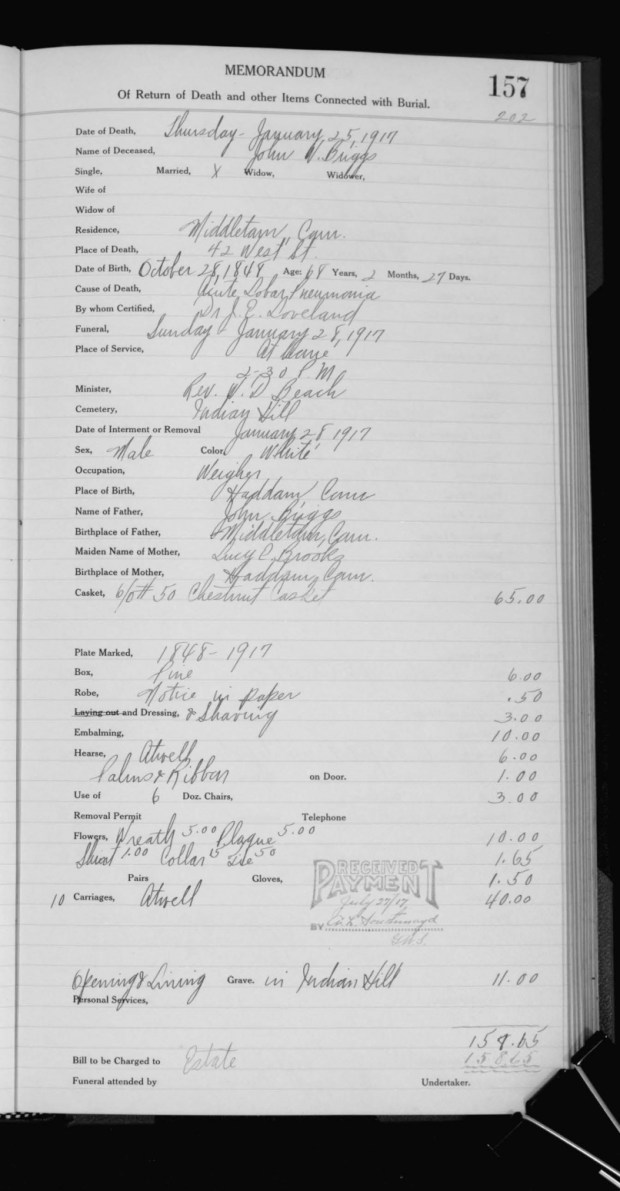 MEMORANDUM
157
Of Return of Death and other Items Connected with Burial.
202
Date of Death, Thursday - January 25, 1917
Name of Deceased, John W. Briggs
Single, Married, X Widow, Widower,
Wife of
Widow of
Residence, Middletown, Conn.
Place of Death, 42 West St.
Date of Birth, October 28, 1848 Age: 68 Years, 2 Months, 27 Days.
Cause of Death, Acute Lobar Pneumonia
By whom Certified, Dr J. E. Loveland
Funeral, Sunday - January 28, 1917
Place of Service, At home
2-30 P.M.
Minister, Rev. D Beach
Cemetery, Indian Hill
Date of Interment or Removal January 28 1917
Sex, Male Color, White
Occupation, Weigher
Place of Birth, Haddam Conn
Name of Father, John Briggs
Birthplace of Father, Middletown, Conn.
Maiden Name of Mother, Lucy C. Brooks
Birthplace of Mother, Haddam, Conn.
Casket, 6/0 # 50 Chestnut Casket 65.00
Plate Marked, 1848 - 1917
Box, Pine 6.00
Robe, Notice in paper .50
Laying out and Dressing, & Shaving 3.00
Embalming, 10.00
Hearse, Atwell 6.00
Palms & Ribbon on Door. 1.00
Use of 6 Doz. Chairs, 3.00
Removal Permit Telephone
Flowers, Wreath 5.00 Plaque 5.00 10.00
Shirt 1.00 Collar 15 Tie 50 1.65
Pairs Gloves, 1.50
10 Carriages, Atwell 40.00
RECEIVED
PAYMENT
July 27/17
BY
Opening & Lining Grave. in Indian Hill 11.00
Personal Services,
158.65
Bill to be Charged to Estate 158.65
Funeral attended by Undertaker.